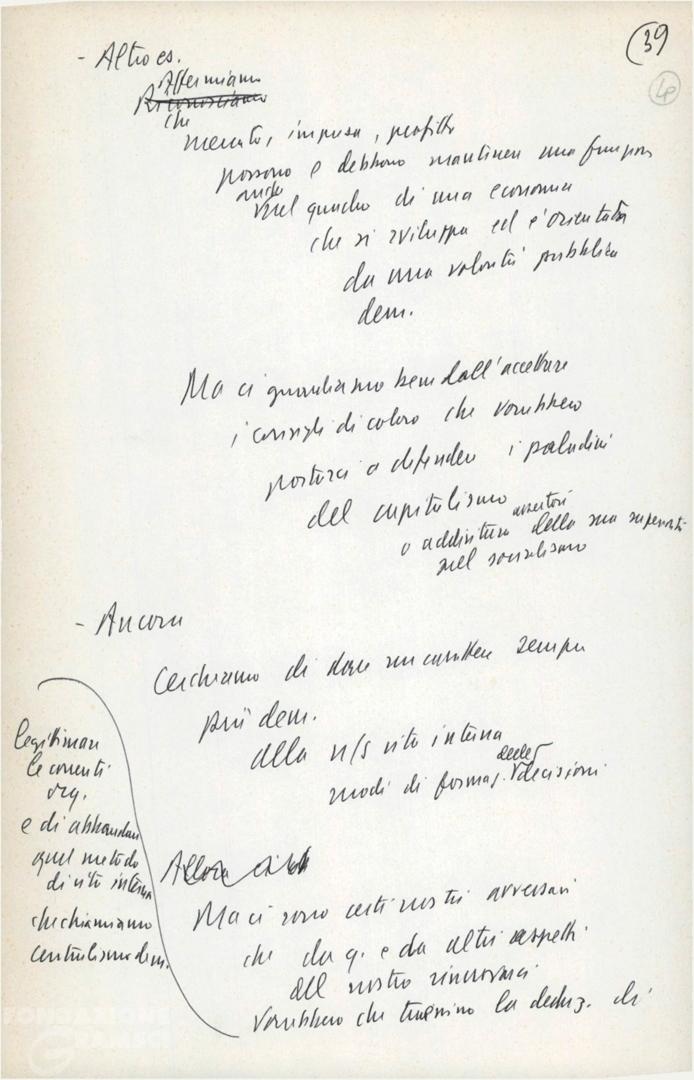 39
- Altro es.
Affermiamo
Riconosciamo
che
mercato, impresa, profitto
possono e debbono mantenere una funzion
nel quadro di una economia
che si sviluppa ed è orientata
da una volontà pubblica
dem.
Ma ci guardiamo bene dall'accettare
i consigli di coloro che vorrebbero
portarci a difendere i paladini
del capitalismo
assertori
o addirittura della sua superiorità
sul socialismo
- Ancora
Cerchiamo di dare un carattere sempre
più dem.
alla n/s vita interna
delle
modi di formaz. decisioni
Allora ci
Ma ci sono certi nostri avversari
che da q. e da altri aspetti
del nostro rinnovarci
vorrebbero che traessimo la deduz. di
legittimare
le correnti
org.
e di abbandonare
quel metodo
di vita interna
che chiamiamo
centralismo dem.